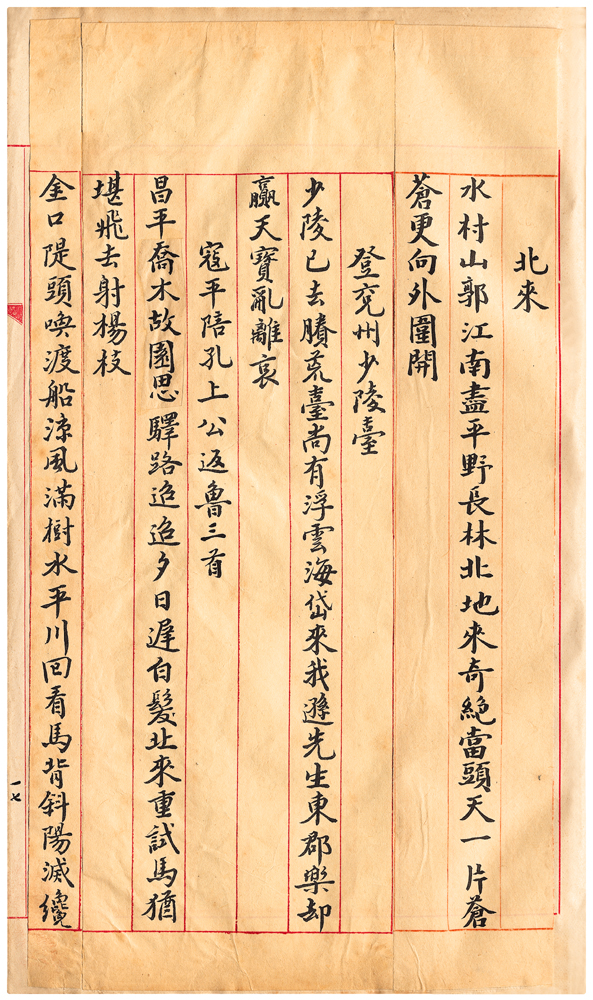 北來
水村山郭江南盡平野長林北地來奇絕當頭天一片蒼
蒼更向外圍開
登兖州少陵臺
少陵已去賸荒臺尚有浮雲海岱來我遜先生東郡樂却
贏天寶亂離哀
寇平陪孔上公返魯三首
昌平喬木故園思驛路迢迢夕日遲白髮北來重試馬猶
堪飛去射楊枝
金口隄頭喚渡船涼風滿樹水平川回看馬背斜陽滅纔
一七